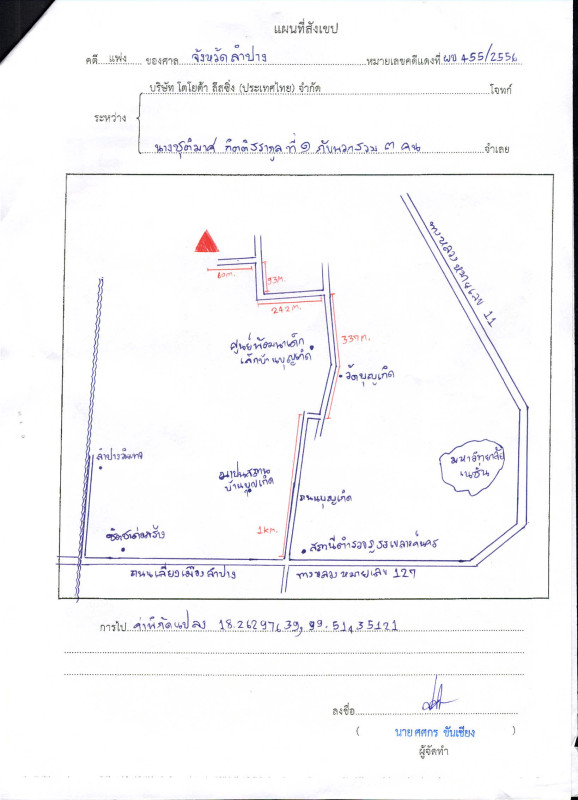 แผนที่สังเขป
คดี แพ่ง ของศาล จังหวัดลำปาง หมายเลขคดีแดงที่ ผบ 455/2556
บริษัท โตโยต้า ลีสซิ่ง (ประเทศไทย) จำกัด โจทก์
ระหว่าง
ที่ ๑ กับพวกรวม ๓ คน จำเลย
ทางหลวงหมายเลข 11
60m.
93m.
242m.
337m.
ศูนย์พัฒนาเด็ก
เล็กบ้านบุญเกิด
วัดบุญเกิด
มหาวิทยาลัย
เนชั่น
ฌาปนสถาน
บ้านบุญเกิด
ถนนบุญเกิด
1km.
สถานีตำรวจภูธรเขลางค์นคร
ถนนเลี่ยงเมืองลำปาง
ทางหลวงหมายเลข 127
การไป ค่าพิกัดแปลง 18.26297639, 99.51435121
ลงชื่อ
( นายศศกร ขันเชียง )
ผู้จัดทำ